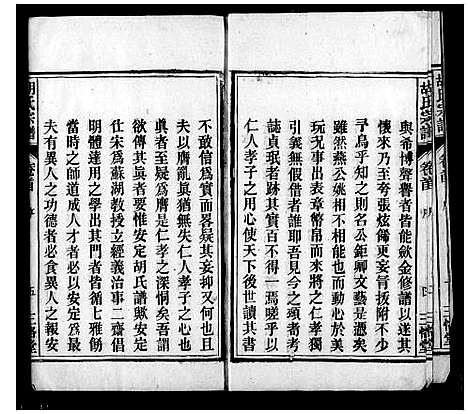 胡氏宗譜
卷首
序
四
三
堂
與希博聲譽者皆能斂金修譜以遂其
懷來乃至夸張炫飾更妄行攀援附少
予烏乎知之所知者名公鉅卿戔戔是
雖然燕公姚相不相能也動心於美
玩況事已出表章幣帛而來將之仁孝
懇懇勤勤假借者誰耶吾見今之爲
誌貞珉者跡其實百不得一焉嗟乎以
仁人孝子之用心使天下
不敢信爲實而畧疑其妄抑又不幸矣
夫以膺亂眞猶無失仁人孝子之心也
眞者至疑爲贋是仁孝之深恫矣吾謂
欲傳其眞者要惟安定胡氏譜歟安定
仕宋爲蘇湖教授立經義治事二齋倡
明體達用之學出其門者皆循七雅飭
當時之師道成人才者必以安定爲最
夫有異人之功德者必食異人之報安
胡氏宗譜
卷首
序
五
三
堂